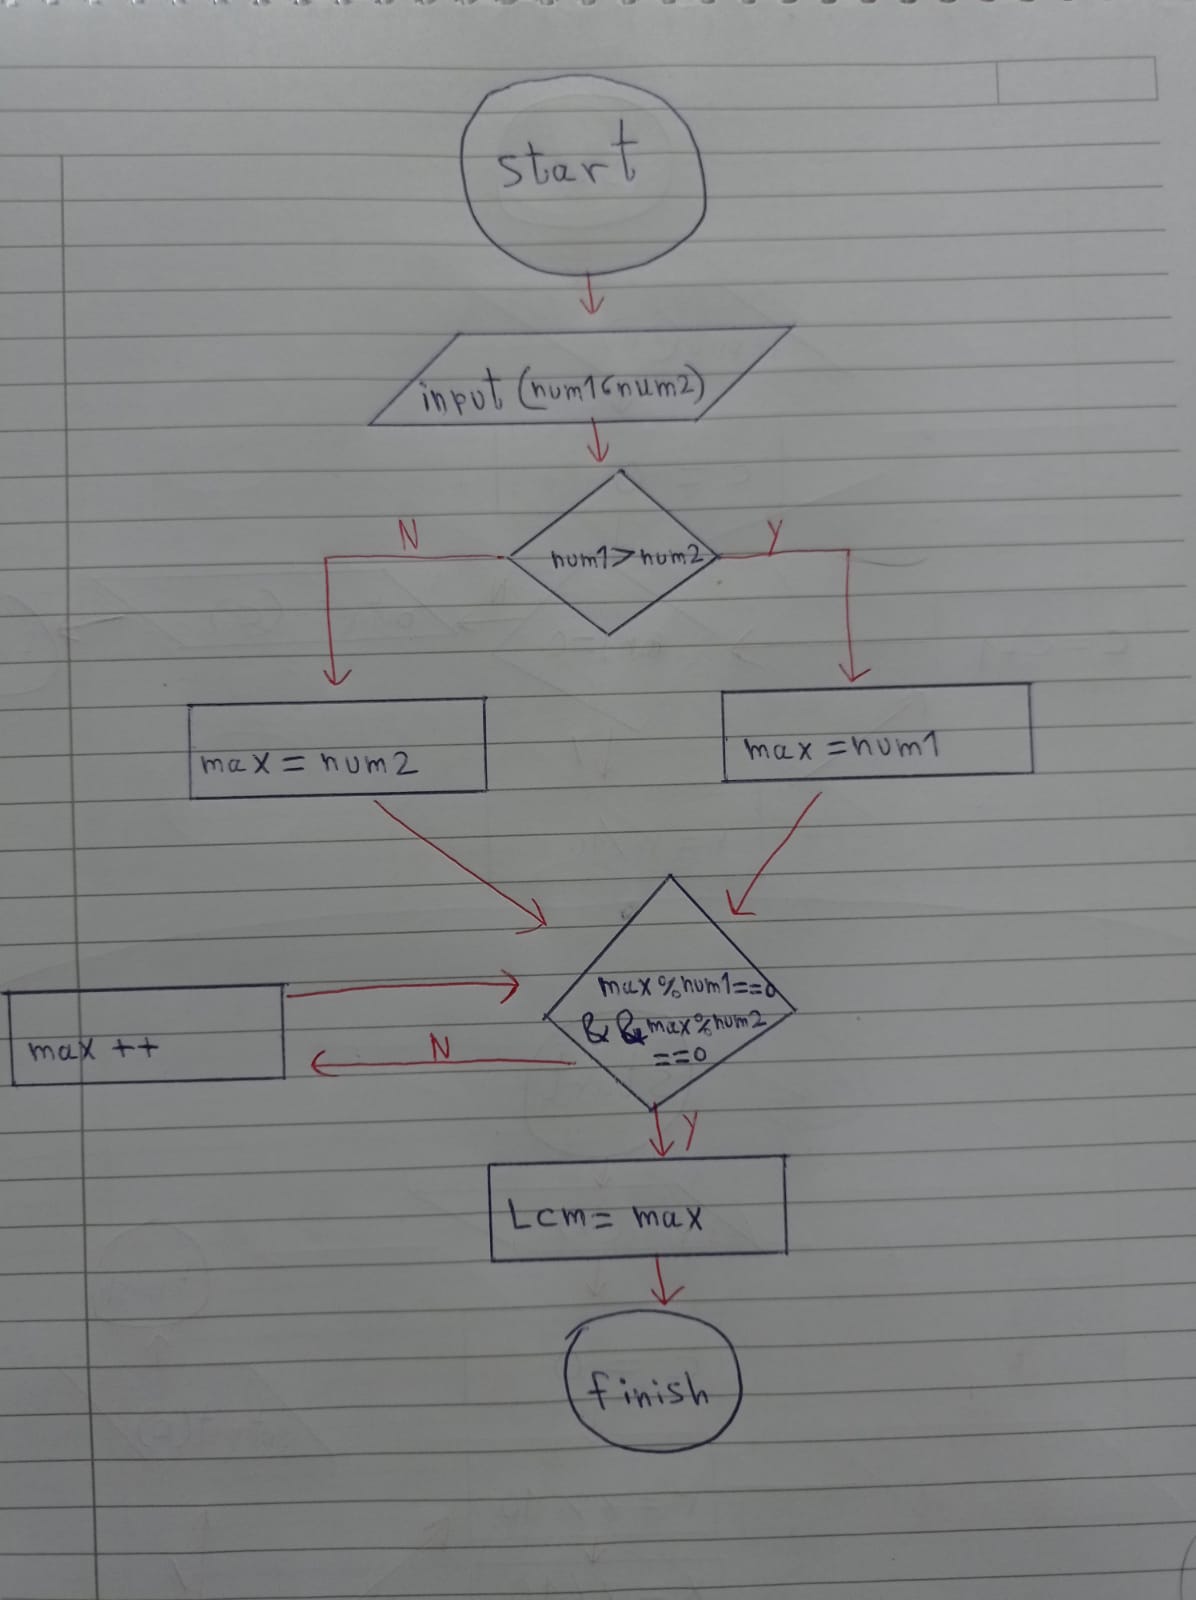 start
input (num1،num2)
N
num1>num2
Y
max = num2
max =num1
max%num1==0
&&max%num2
==0
max ++
N
Y
Lcm= max
finish